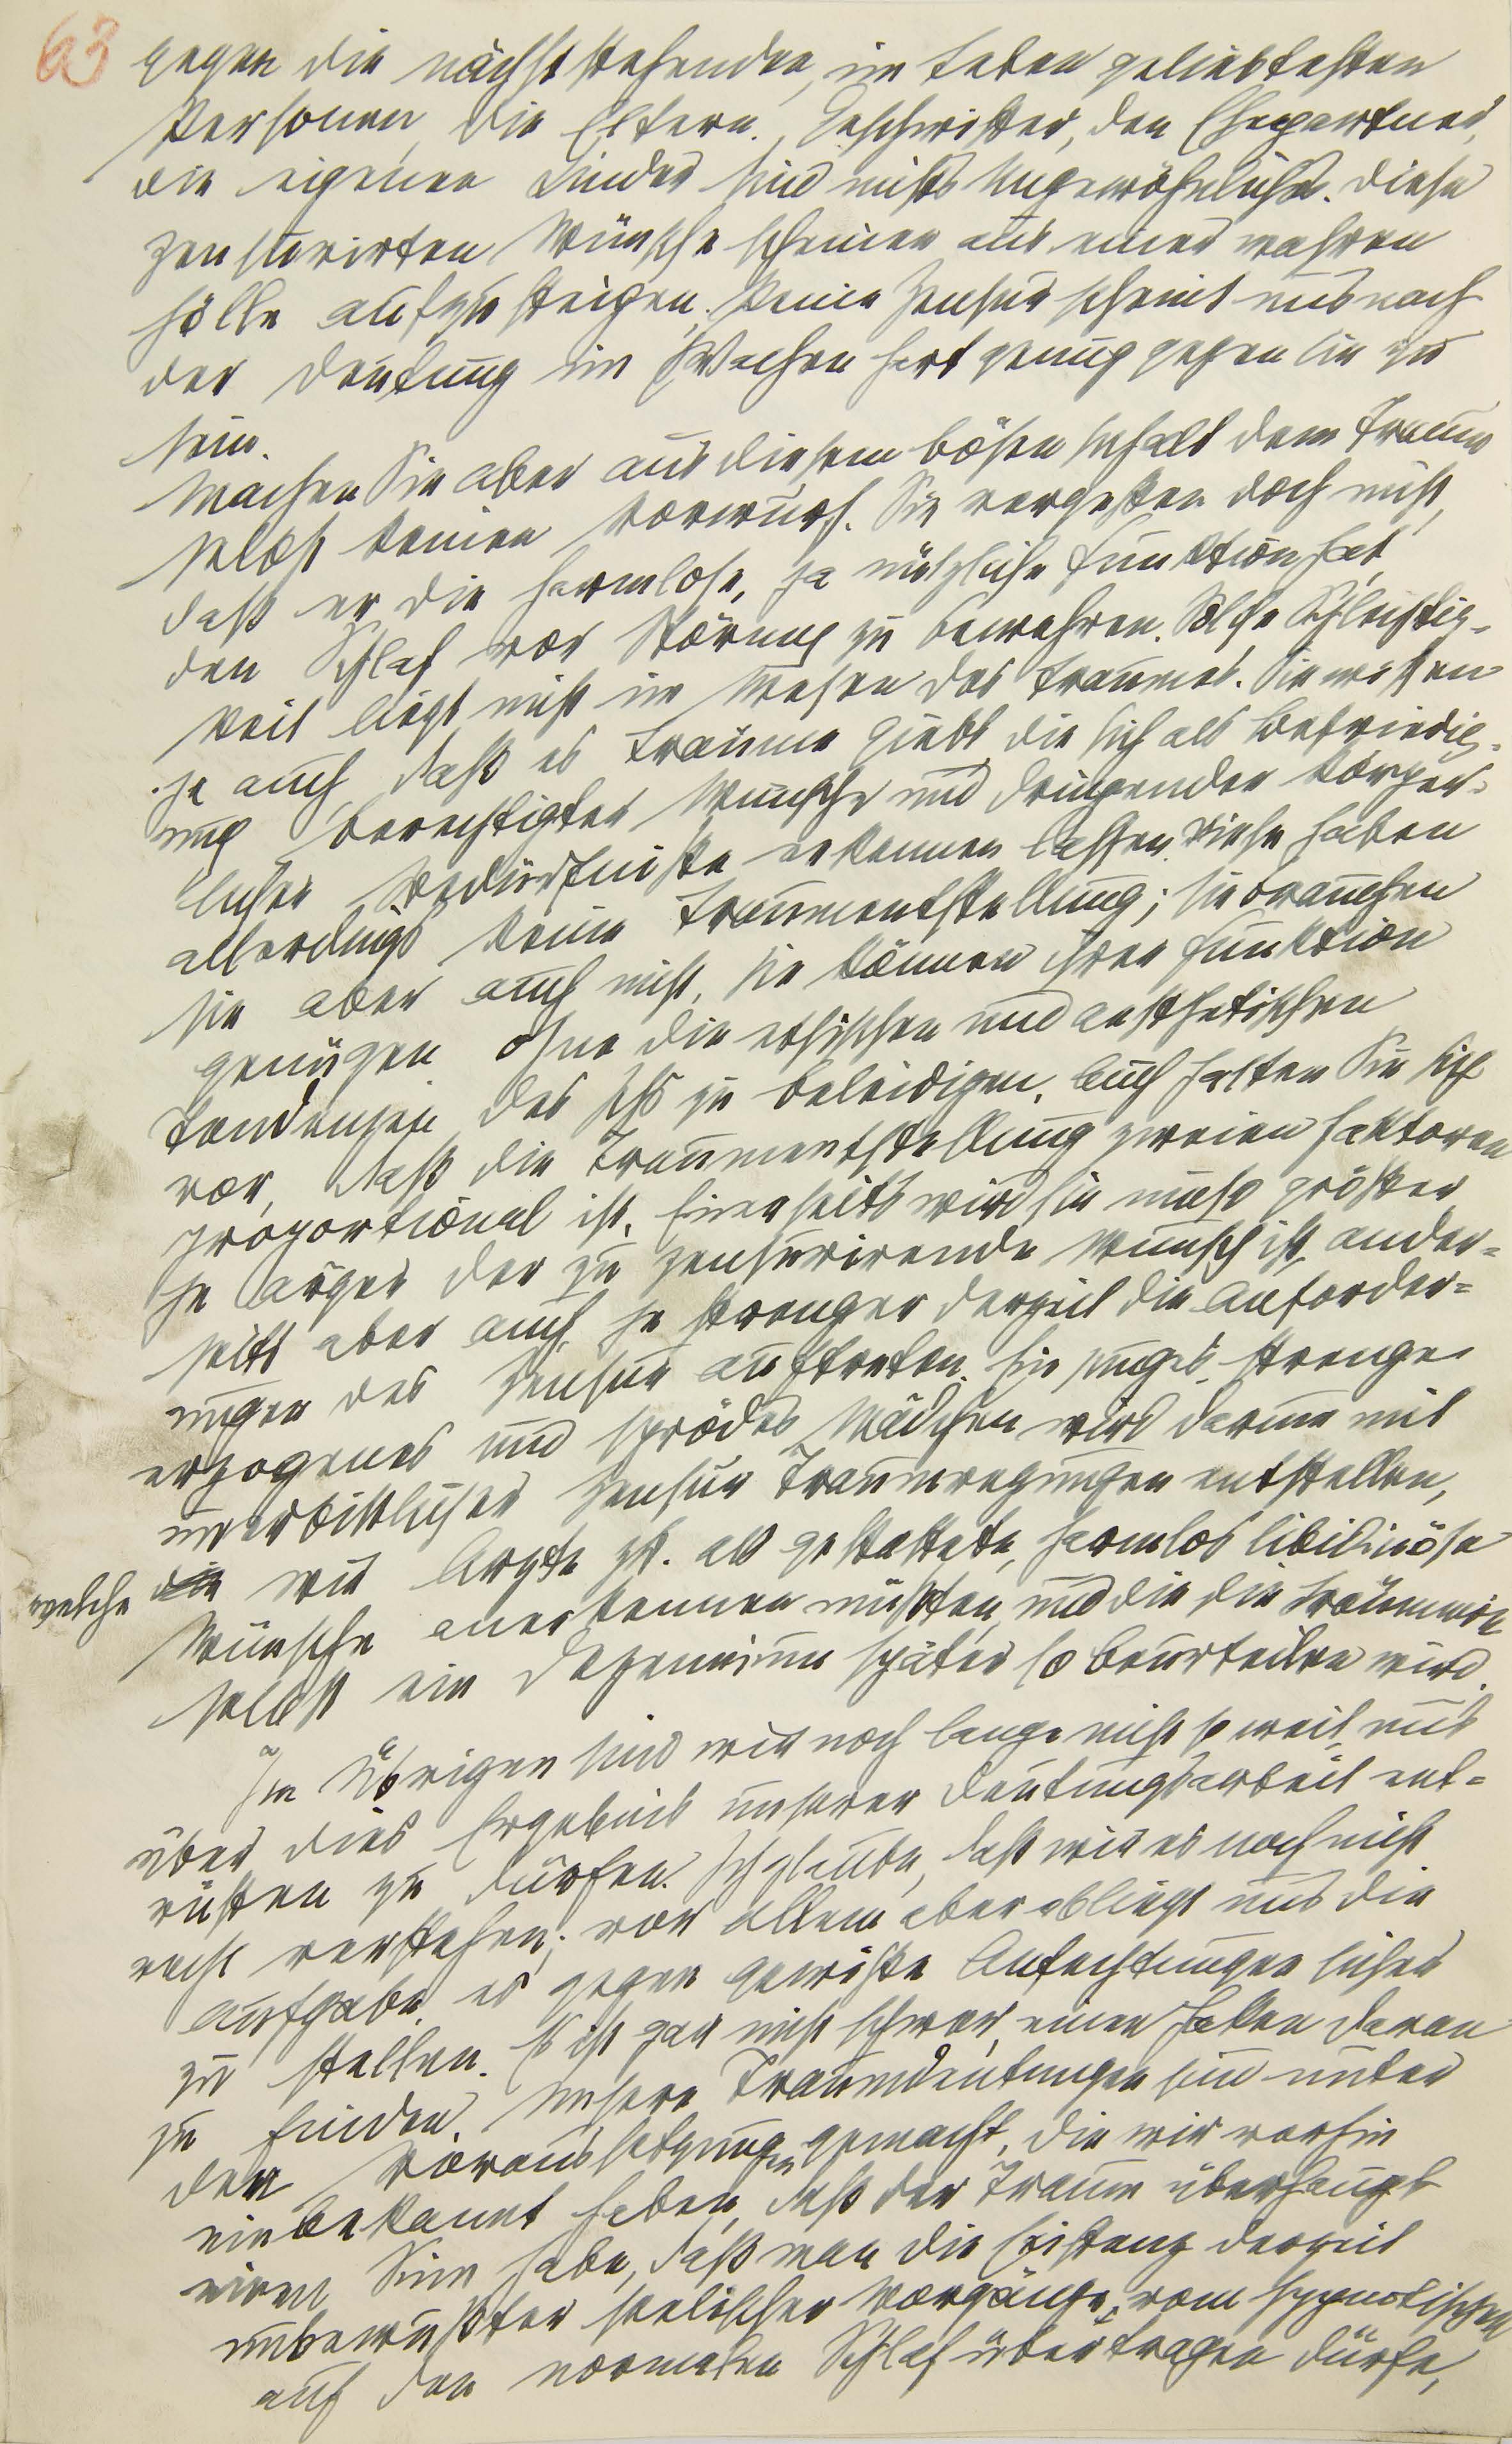 63
gegen die nächststehenden, im Leben geliebtesten
Personen, die Eltern, Geschwister, den Ehepartner,
die eigenen Kinder sind nichts Ungewöhnliches. Diese
zensurirten Wünsche scheinen aus einer wahren
Hölle aufzusteigen. Keine Zensur scheint uns nach
der Deutung im Wachen hart genug gegen sie zu
sein.
Machen Sie aber aus diesem bösen Inhalt dem Traum
selbst keinen Vorwurf. Sie vergessen doch nicht,
daß er die harmlose, ja nützliche Funktion hat,
den Schlaf vor Störung zu bewahren. Solche Schlechtig-
keit liegt nicht im Wesen des Traumes. Sie wissen
ja auch daß es Träume giebt die sich als Befriedig-
ung berechtigter Wünsche und dringender körper-
licher Bedürfnisse erkennen lassen. Diese haben
allerdings keine Traumentstellung; sie brauchen
sie aber auch nicht, sie können ihrer Funktion
genügen ohne die ethischen und aesthetischen
Tendenzen des Ichs zu beleidigen. Auch halten Sie sich
vor, daß die Traumentstellung zweien Faktoren
proportional ist. Einerseits wird sie umso größer
je ärger der zu zensurirende Wunsch ist, ander-
seits aber auch je strenger derzeit die Anforder-
ungen der Zensur auftreten. Ein junges, strenge
erzogenes und sprödes Mädchen wird darum mit
unerbittlicher Zensur Traumregungen entstellen,
welche die wir Ärzte als gestattete, harmlos libidinöse
Wünsche anerkennen müßten, und die die Träumerin
selbst ein Dezennium später so beurteilen wird.
Im Übrigen sind wir noch lange nicht so weit, uns
über dies Ergebnis unserer Deutungsarbeit ent-
rüsten zu dürfen. Ich glaube, daß wir es noch nicht
recht verstehen; vor allem aber obliegt uns die
Aufgabe, es gegen gewisse Anfechtungen sicher
zu stellen. Es ist gar nicht schwer, einen Haken daran
zu finden. Unsere Traumdeutungen sind unter
den Voraussetzungen gemacht, die wir vorhin
einbekannt haben, daß der Traum überhaupt
einen Sinn habe, daß man die Existenz derzeit
unbewußter seelischer Vorgänge vom hypnotischen
auf den normalen Schlaf übertragen dürfe,